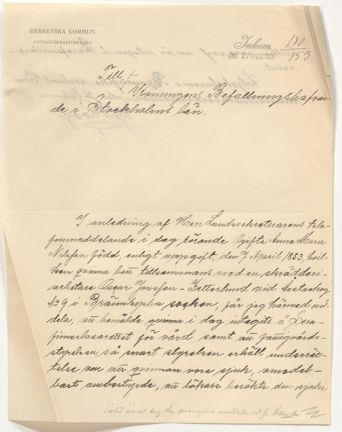 BRÄNKYRKA KOMMUN
FATTIGVÅRDSSTYRELSEN
Inkom 180
153
Till
Konungens Befallningshafvan-
de i Stockholms län.
I anledning af Herr Landssekreterarens tele-
fonmeddelande i dag rörande Ogifta Anna Maria
född, enligt uppgift, den 7 April 1853, hvil-
ken qvinna bott tillsammans med en skrädderi-
arbetare Oscar Josefson-Zetterlund vid
No 9 i Brännkyrka socken, får jag härmed med-
dela, att bemälda qvinna i dag intagits å
för vård samt att fattigvårds-
styrelsen, så snart styrelsen erhållit underrät-
telse om att qvinnan vore sjuk, omedel-
bart ombestyrde, att läkare besökte den sjuka